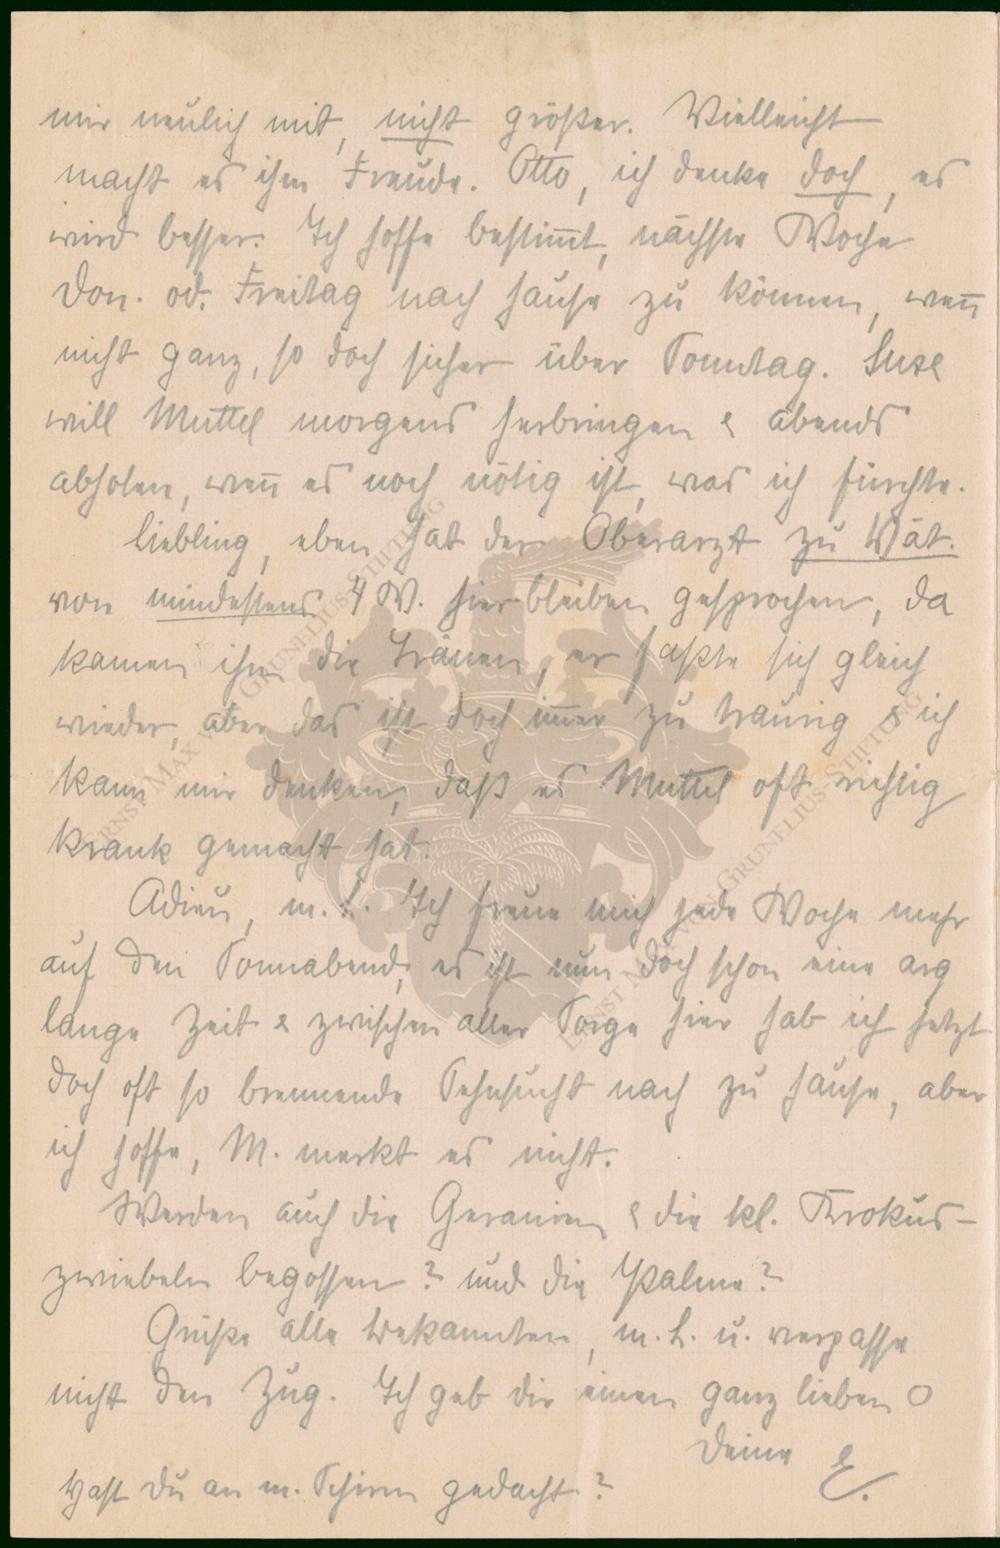 mir neulich mit, nicht größer. Vielleicht
macht es ihm Freude. Otto, ich denke doch, es
wird besser. Ich hoffe bestim̅t, nächste Woche
Don. od. Freitag nach Hause zu können, wen̅
nicht ganz, so doch sicher über Sonntag. Suse
will Muttel morgens herbringen & abends
abholen, wen̅ es noch nötig ist, was ich fürchte.
Liebling, eben hat der Oberarzt zu Vät.
von mindestens 4 W. hierbleiben gesprochen, da
kamen ihm die Tränen, er faßte sich gleich
wieder, aber das ist doch im̅er zu traurig & ich
kann mir denken, daß es Muttel oft richtig
krank gemacht hat.
Adieu, m. L. Ich freue mich jede Woche mehr
auf den Sonnabend, es ist nun doch schon eine arg
lange Zeit & zwischen aller Sorge hier hab ich jetzt
doch oft so brennende Sehnsucht nach zu Hause, aber
ich hoffe, M. merkt es nicht.
Werden auch die Geranien & die kl. Krokus-
zwiebeln begossen? und die Palme?
Grüße alle Bekannten, m. L. u. verpasse
nicht den Zug. Ich geb dir einen ganz lieben O
Deine E.
Hast Du an m. Schirm gedacht?
ERNST MAX VON GRUNELIUS-STIFTUNG
ERNST MAX VON GRUNELIUS-STIFTUNG